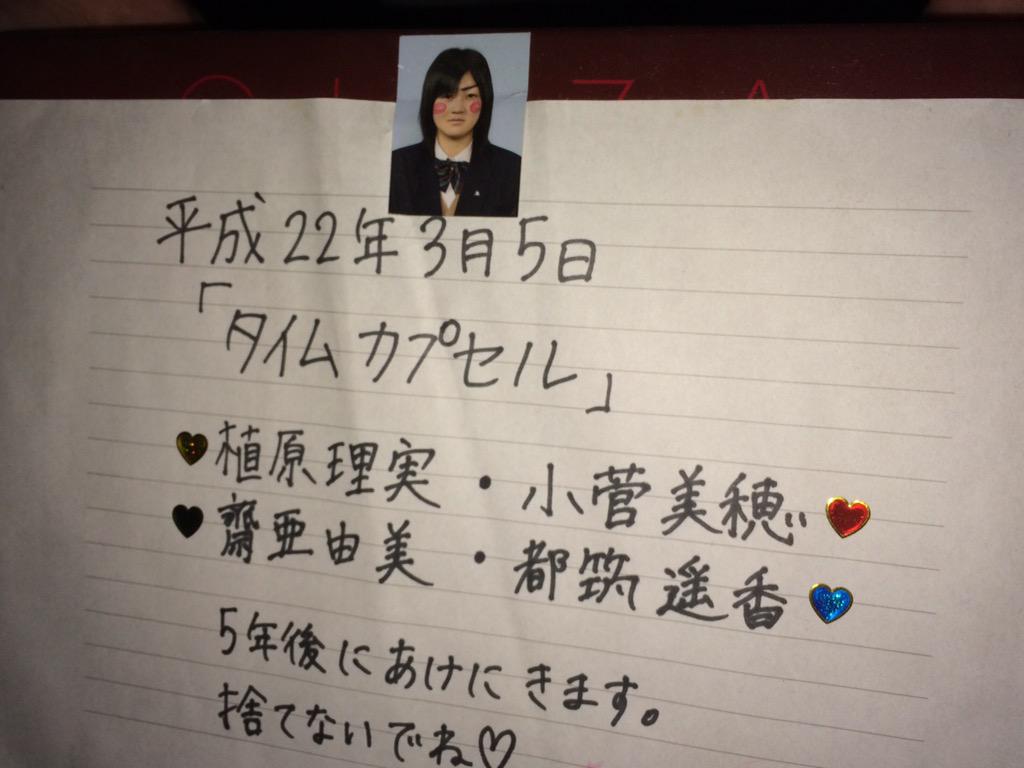 平成22年3月5日
「タイムカプセル」
植原理実・小菅美穂
齋亜由美・都筑遥香
5年後にあけにきます。
捨てないでね♡